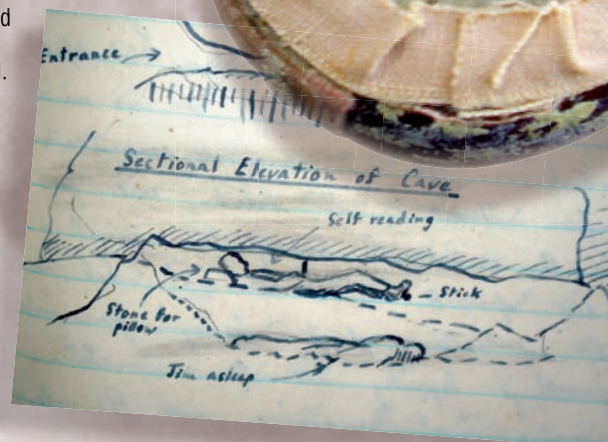 d
.
Entrance
Sectional Elevation of Cave
Self reading
Stick
Stone for
pillow
Jim asleep